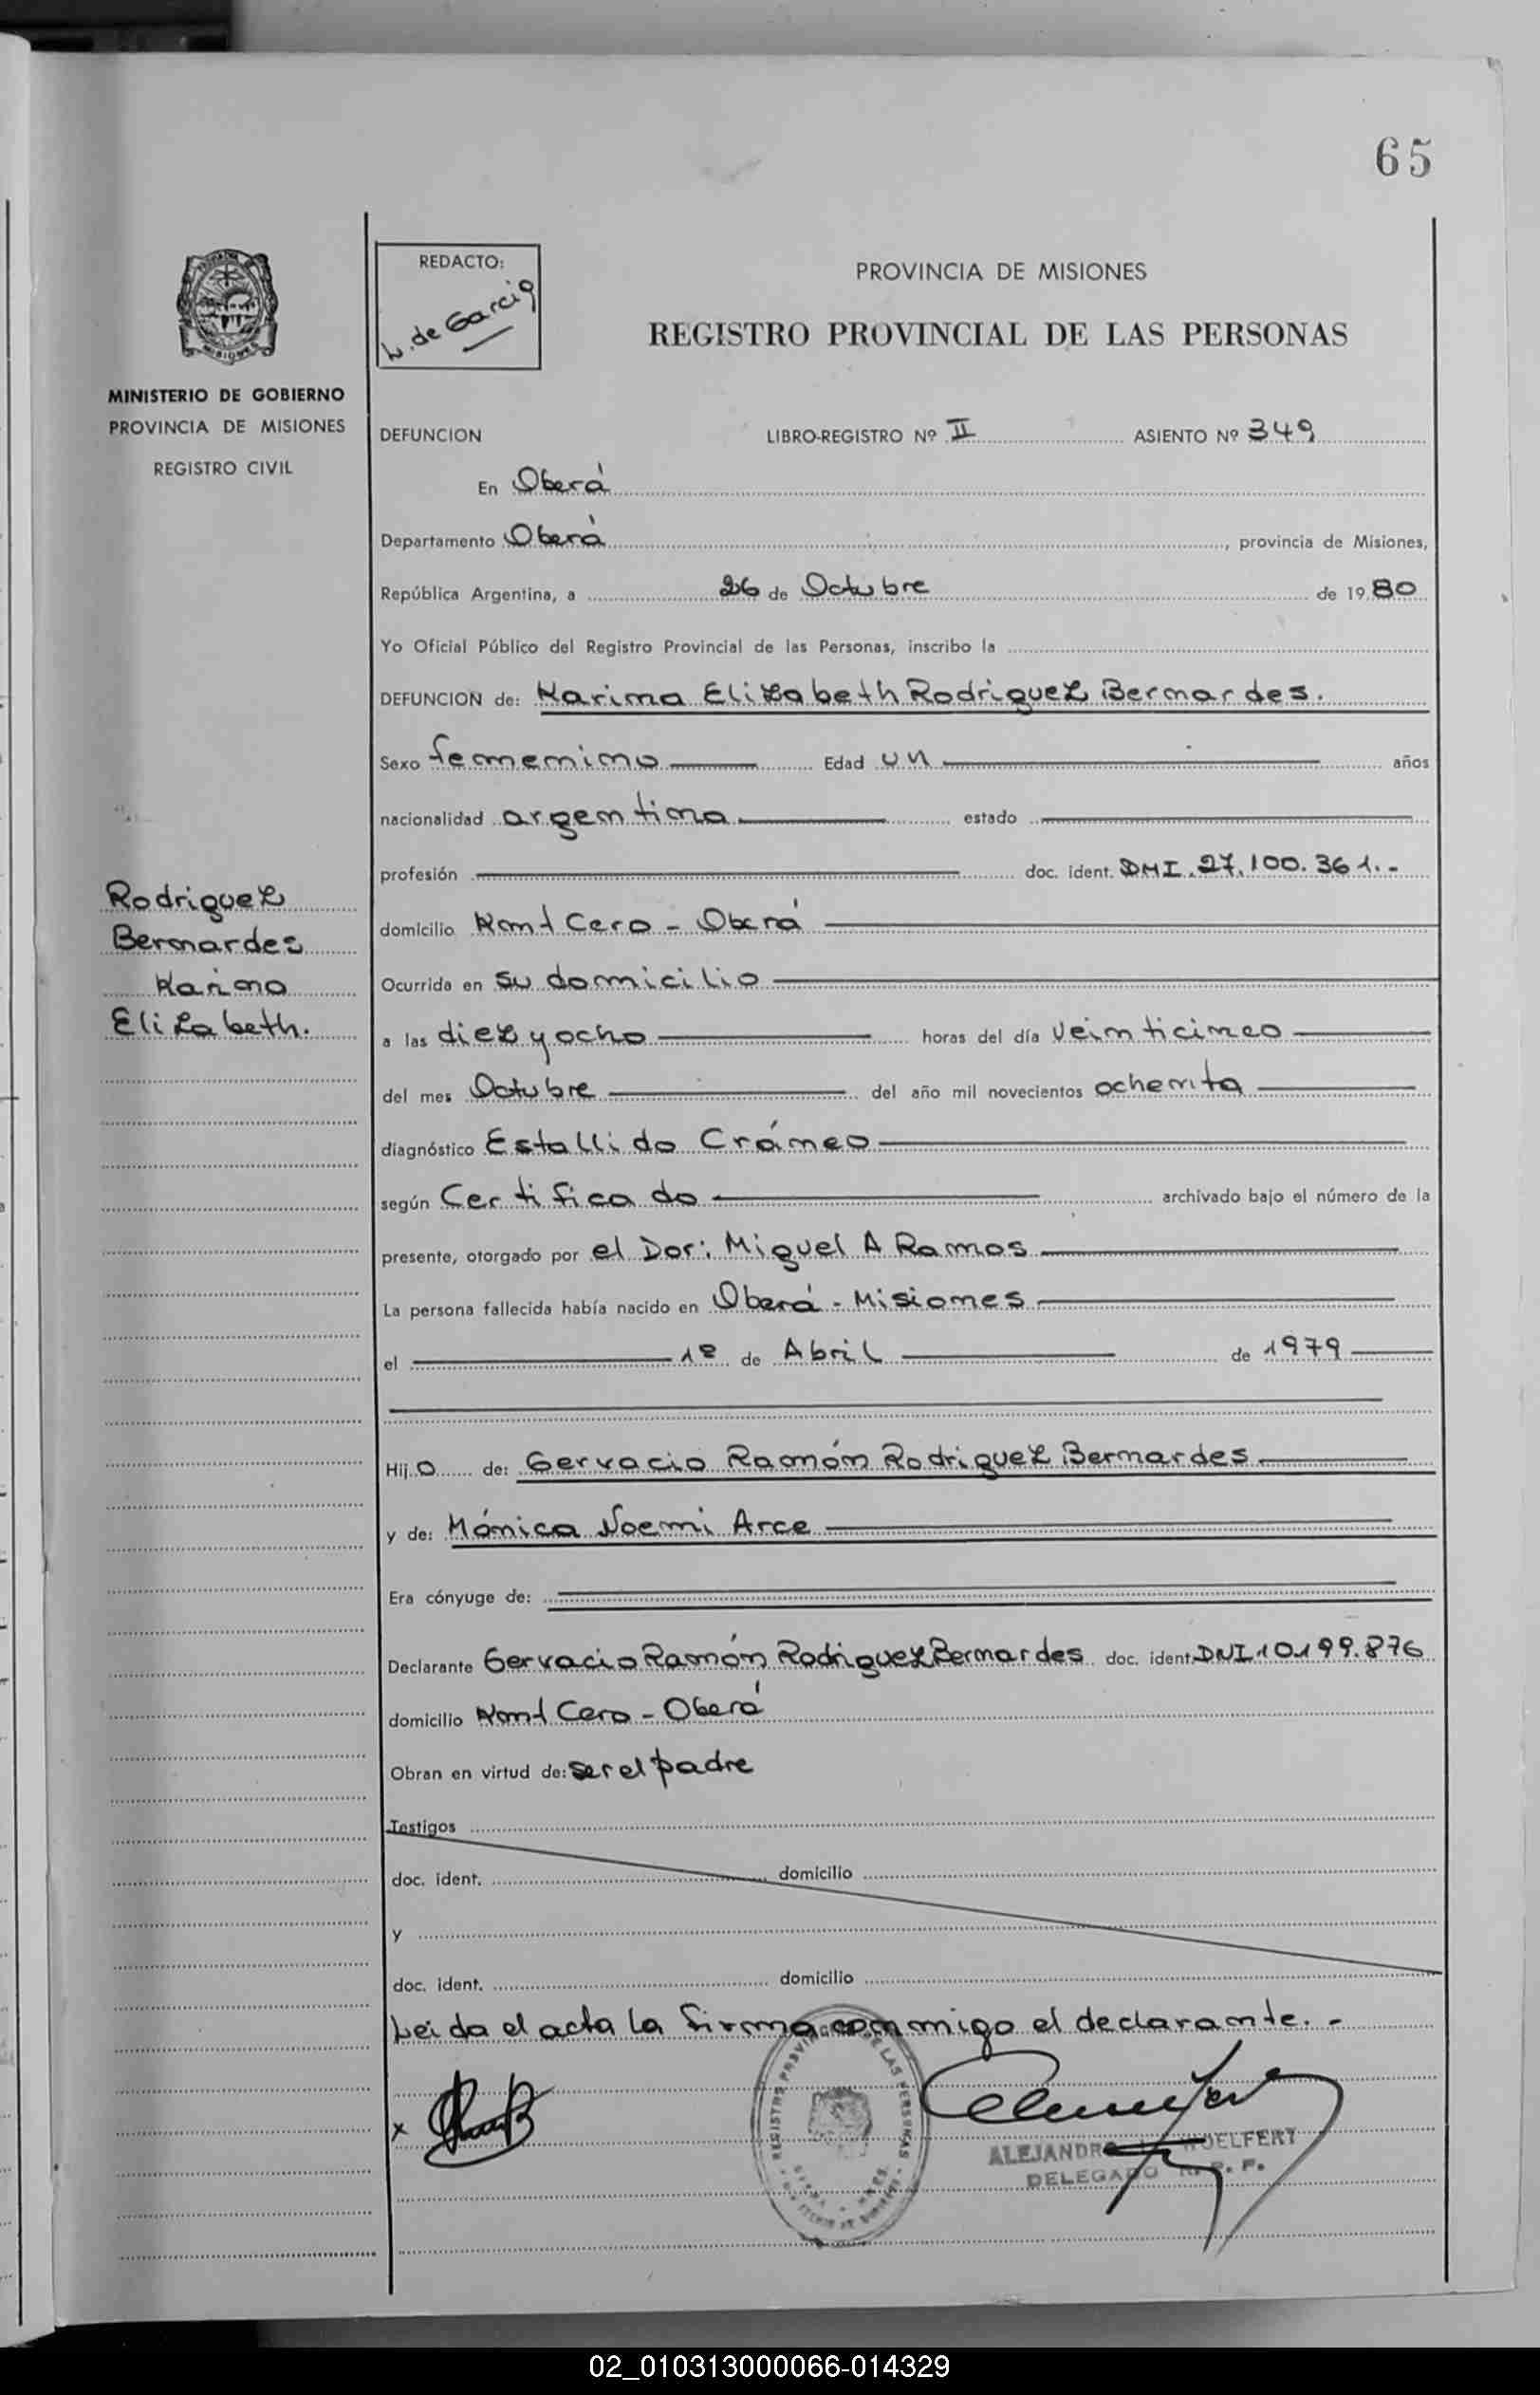 65
REDACTO:
L. de Garcia
PROVINCIA DE MISIONES
REGISTRO PROVINCIAL DE LAS PERSONAS
MINISTERIO DE GOBIERNO
PROVINCIA DE MISIONES
REGISTRO CIVIL
DEFUNCION LIBRO-REGISTRO Nº II ASIENTO Nº 349
En Oberá
Departamento Oberá, provincia de Misiones,
República Argentina, a 26 de Octubre de 1980
Yo Oficial Público del Registro Provincial de las Personas, inscribo la
DEFUNCION de: Karina Elizabeth Rodriguez Bernardes.
Sexo femenino Edad un años
nacionalidad argentina estado
profesión doc. ident. DNI. 27.100.361.-
Rodriguez
Bernardes
Karina
Elizabeth.
domicilio Km 1 Cero - Oberá
Ocurrida en su domicilio
a las diez y ocho horas del día veinticinco
del mes Octubre del año mil novecientos ochenta
diagnóstico Estallido Cráneo
según Certificado archivado bajo el número de la
presente, otorgado por el Dor: Miguel A Ramos
La persona fallecida había nacido en Oberá - Misiones
el 1º de Abril de 1979
Hijo de: Gervacio Ramón Rodriguez Bernardes
y de: Mónica Noemi Arce
Era cónyuge de:
Declarante Gervacio Ramón Rodriguez Bernardes doc. ident. DNI 10.199.876
domicilio Km 1 Cero - Oberá
Obran en virtud de: ser el padre
Testigos
doc. ident. domicilio
y
doc. ident. domicilio
Leida el acta la firma conmigo el declarante.-
x
REGISTRO PROVINCIAL DE LAS PERSONAS
ALEJANDRO WOELFERT
DELEGADO R. P. P.
02_010313000066-014329